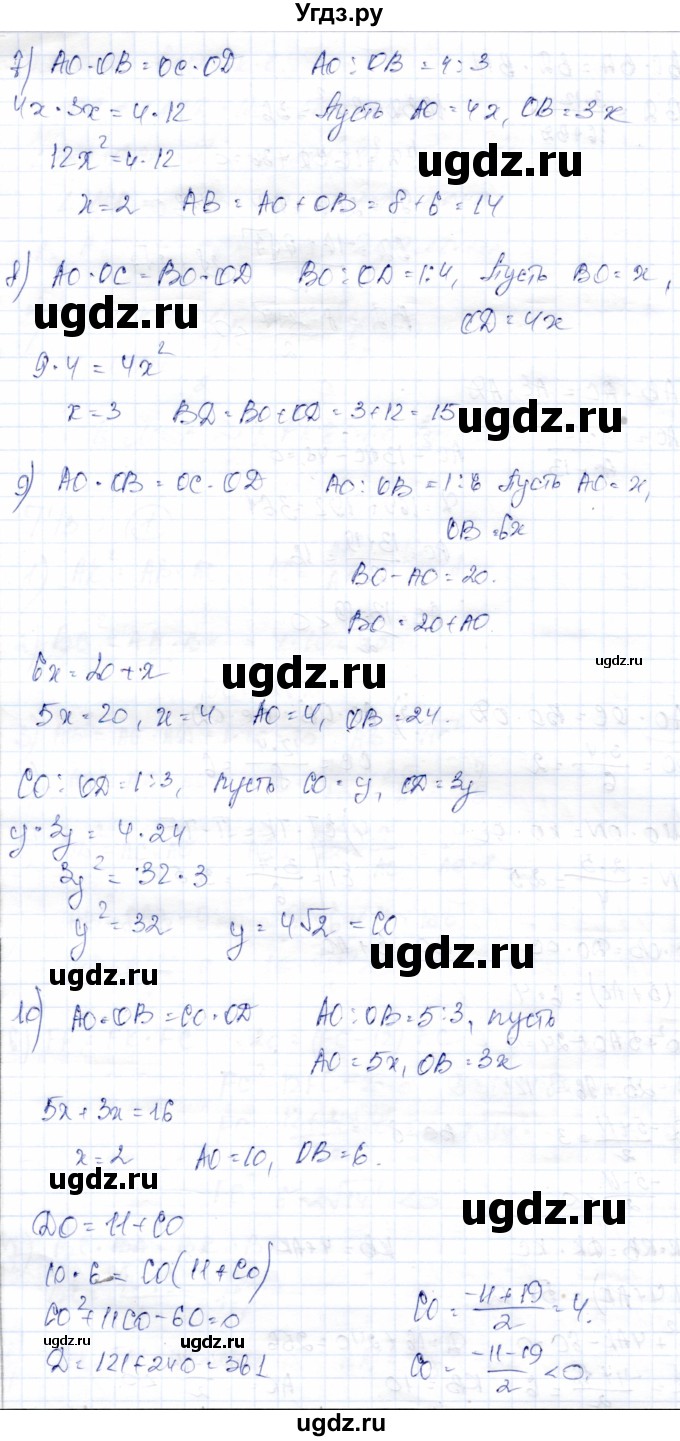 Угдз.ру
7) AO·OB = OC·OD AO : OB = 4 : 3
4x·3x = 4·12 Пусть AO = 4x, OB = 3x
ugdz.ru
12x² = 4·12
x = 2 AB = AO + OB = 8 + 6 = 14
8) AO·OC = BO·OD BO : OD = 1:4, Пусть BO = x,
ugdz.ru
OD = 4x
9·4 = 4x²
x = 3 BD = BO + OD = 3 + 12 = 15
ugdz.ru
9) AO·OB = OC·OD AO : OB = 1 : 6 Пусть AO = x,
OB = 6x
BO - AO = 20.
BO = 20 + AO.
6x = 20 + x
ugdz.ru
ugdz.ru
5x = 20, x = 4 AO = 4, OB = 24.
CO : OD = 1 : 3, пусть CO = y, OD = 3y
y·3y = 4·24
3y² = 32·3
y² = 32 y = 4√2 = CO
ugdz.ru
ugdz.ru
10) AO·OB = CO·OD AO : OB = 5 : 3, пусть
AO = 5x, OB = 3x
5x + 3x = 16
x = 2 AO = 10, OB = 6.
ugdz.ru
ugdz.ru
DO = 11 + CO
10·6 = CO(11 + CO)
CO² + 11CO - 60 = 0 CO = (-11+19)/2 = 4.
ugdz.ru
ugdz.ru
D = 121 + 240 = 361 CO = (-11-19)/2 < 0
ugdz.ru